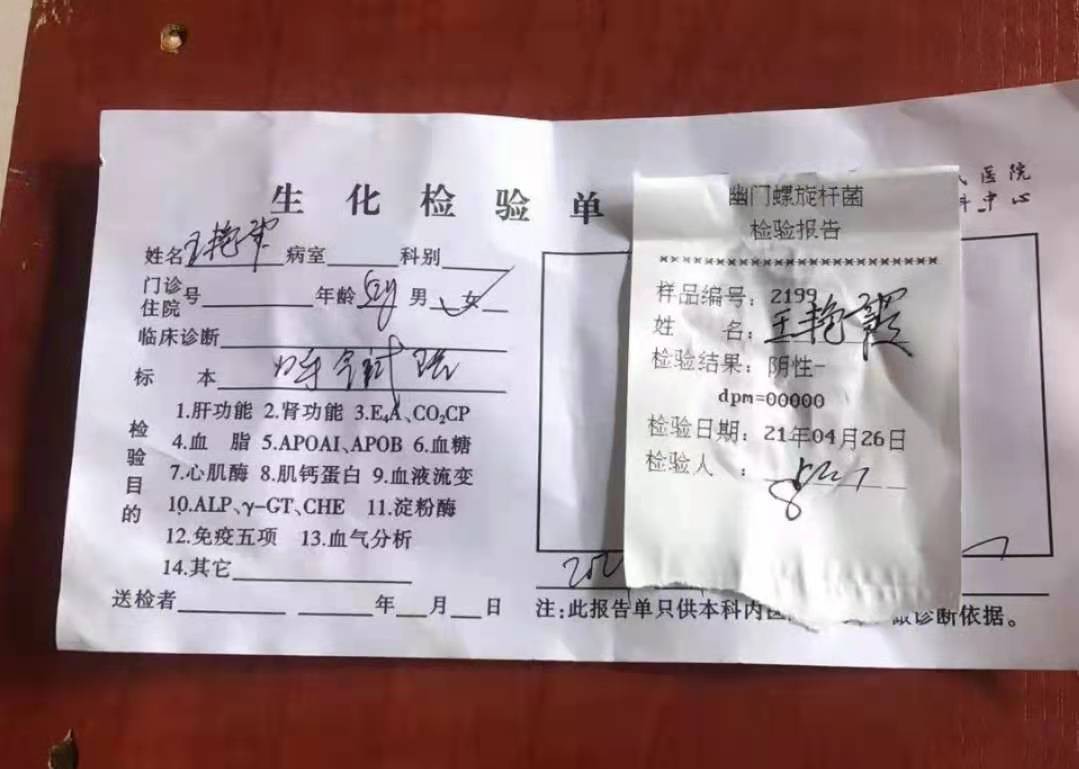 生化检验单
姓名 王艳霞 病室 科别
门诊
住院 号 年龄 男 女
临床诊断
标 本
检验目的
1.肝功能 2.肾功能 3.E₄A、CO₂CP
4.血 脂 5.APOAI、APOB 6.血糖
7.心肌酶 8.肌钙蛋白 9.血液流变
10.ALP、γ-GT、CHE 11.淀粉酶
12.免疫五项 13.血气分析
14.其它
送检者 年 月 日
医院
中心
幽门螺旋杆菌
检验报告
××××××××××××××××××××××××
样品编号: 2199
姓 名: 王艳霞
检验结果: 阴性-
dpm=00000
检验日期: 21年04月26日
检验人 :
202
注:此报告单只供本科内 诊断依据。